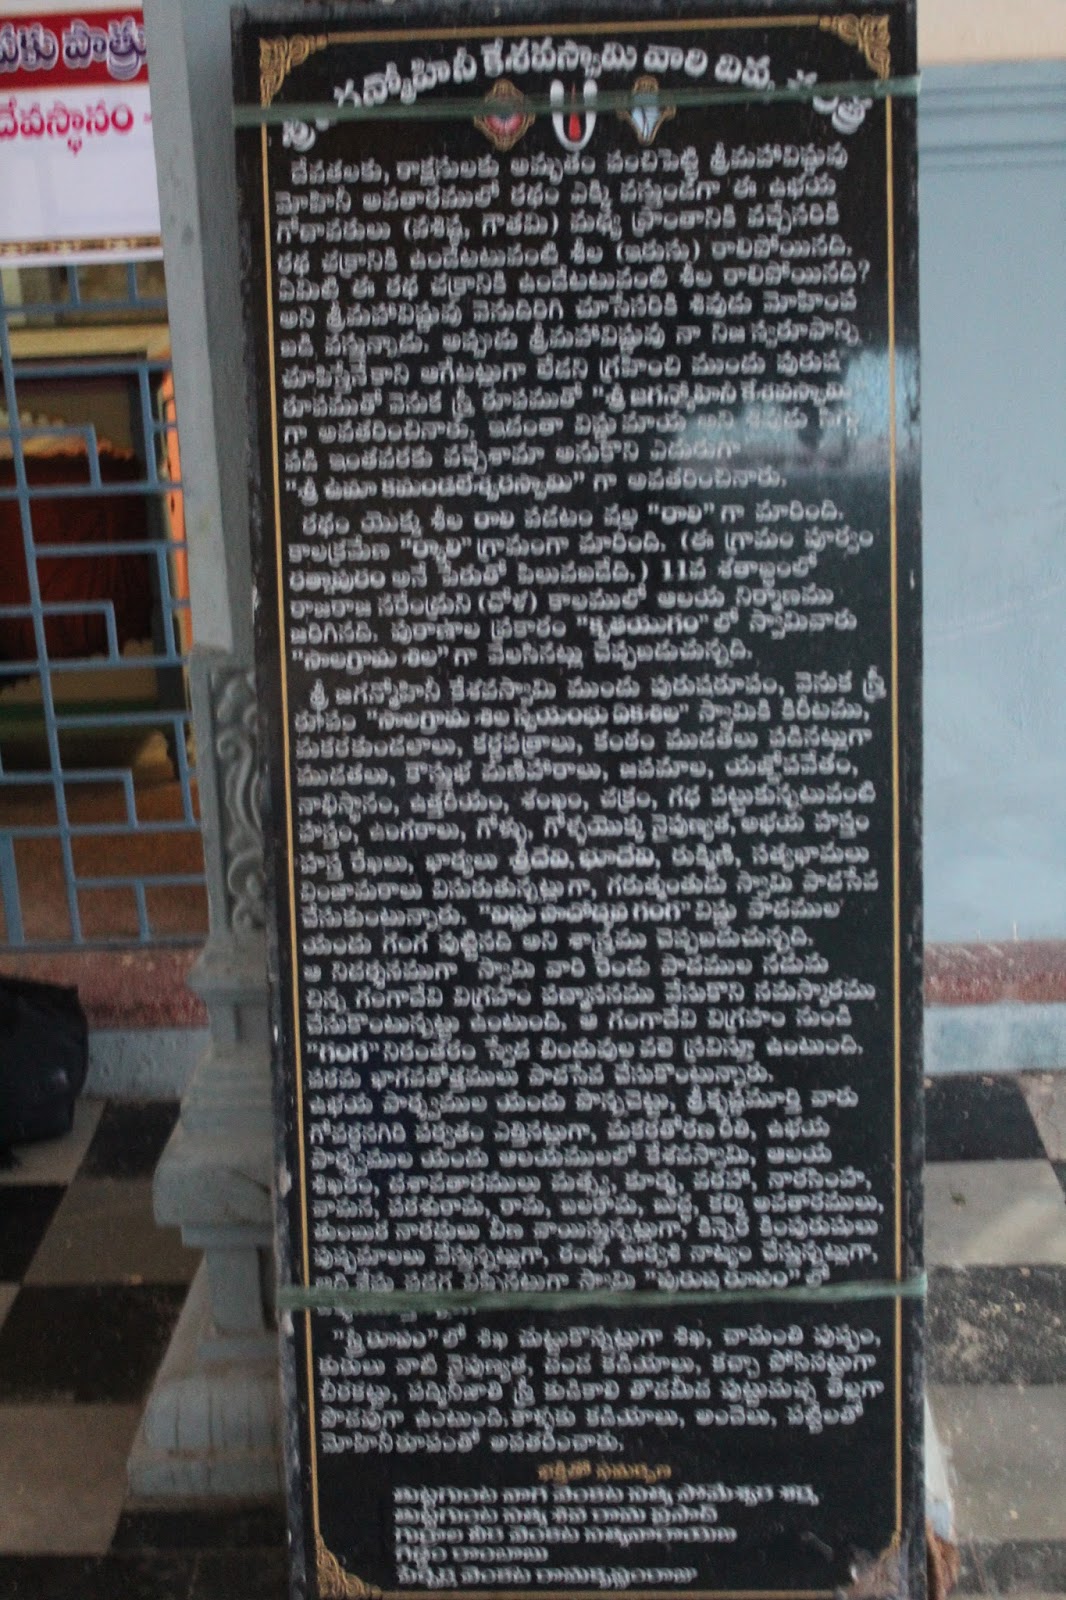 దేవస్థానం
జగన్మోహినీ కేశవస్వామి వారి దివ్య చరిత్ర
దేవతలకు, రాక్షసులకు అమృతం పంచిపెట్టి శ్రీమహావిష్ణువు
మోహినీ అవతారములో రథం ఎక్కి వస్తుండగా ఈ ఉభయ
గోదావరులు (వశిష్ట, గౌతమి) మధ్య ప్రాంతానికి వచ్చేసరికి
రథ చక్రానికి ఉండేటటువంటి శీల (ఇరుసు) రాలిపోయినది.
ఏమిటి ఈ రథ చక్రానికి ఉండేటటువంటి శీల రాలిపోయినది?
అని శ్రీమహావిష్ణువు వెనుదిరిగి చూసేసరికి శివుడు మోహించ
బడి వస్తున్నాడు. అప్పుడు శ్రీమహావిష్ణువు నా నిజ స్వరూపాన్ని
చూపిస్తేనేకాని ఆగేటట్లుగా లేడని గ్రహించి ముందు పురుష
రూపముతో వెనుక స్త్రీ రూపముతో "శ్రీ జగన్మోహినీ కేశవస్వామి"
గా అవతరించినారు. ఇదంతా విష్ణు మాయ అని శివుడు
పడి ఇంతవరకు వచ్చేశామా అనుకొని ఎదురుగా
"శ్రీ ఉమా కమండలేశ్వరస్వామి" గా అవతరించినారు.
రథం యొక్క శీల రాలి పడటం వల్ల "రాలి" గా మారింది.
కాలక్రమేణ "ర్యాలి" గ్రామంగా మారింది. (ఈ గ్రామం పూర్వం
రత్నాపురం అనే పేరుతో పిలువబడేది.) 11వ శతాబ్దంలో
రాజరాజ నరేంద్రుని (చోళ) కాలములో ఆలయ నిర్మాణము
జరిగినది. పురాణాల ప్రకారం "కృతయుగం" లో స్వామివారు
"సాలగ్రామ శిల" గా వెలసినట్లు చెప్పబడుచున్నది.
శ్రీ జగన్మోహినీ కేశవస్వామి ముందు పురుషరూపం, వెనుక స్త్రీ
రూపం "సాలగ్రామ శిల స్వయంభు ఏకశిల" స్వామికి కిరీటము,
మకరకుండలాలు, కర్ణపత్రాలు, కంఠం ముడతలు పడినట్లుగా
ముడతలు, కౌస్తుభ మణిహారాలు, జపమాల, యజ్ఞోపవీతం,
నాభిస్థానం, ఉత్తరీయం, శంఖం, చక్రం, గధ పట్టుకున్నటువంటి
హస్తం, ఉంగరాలు, గోళ్ళు, గోళ్ళయొక్క నైపుణ్యత, అభయ హస్తం
హస్త రేఖలు, భార్యలు శ్రీదేవి, భూదేవి, రుక్మిణి, సత్యభామలు
వింజామరాలు విసురుతున్నట్లుగా, గరుత్మంతుడు స్వామి పాదసేవ
చేసుకుంటున్నారు. "విష్ణు పాదోద్భవి గంగ" విష్ణు పాదముల
యందు గంగ పుట్టినది అని శాస్త్రము చెప్పబడుచున్నది.
ఆ నిదర్శనముగా స్వామి వారి రెండు పాదముల నడుమ
చిన్న గంగాదేవి విగ్రహం పద్మాసనము వేసుకొని నమస్కారము
చేసుకొంటున్నట్లు ఉంటుంది. ఆ గంగాదేవి విగ్రహం నుండి
"గంగ" నిరంతరం స్వేద బిందువుల వలె స్రవిస్తూ ఉంటుంది.
పరమ భాగవతోత్తములు పాదసేవ చేసుకొంటున్నారు.
ఉభయ పార్శ్వముల యందు పొన్నచెట్టు, శ్రీకృష్ణమూర్తి వారు
గోవర్ధనగిరి పర్వతం ఎత్తినట్లుగా, మకరతోరణ రీతి, ఉభయ
పార్శ్వముల యందు ఆలయములలో కేశవస్వామి, ఆలయ
శిఖరం, దశావతారములు మత్స్య, కూర్మ, వరాహ, నారసింహ,
వామన, పరశురామ, రామ, బలరామ, బుద్ధ, కల్కి అవతారములు,
తుంబుర నారదులు వీణ వాయిస్తున్నట్లుగా, కిన్నెర కింపురుషులు
పుష్పమాలలు వేస్తున్నట్లుగా, రంభ, ఊర్వశి నాట్యం చేస్తున్నట్లుగా,
ఆదిశేషు పడగ విప్పినట్లుగా స్వామి "పురుష రూపం" లో
"స్త్రీరూపం" లో శిఖ చుట్టుకొన్నట్లుగా శిఖ, చామంతి పుష్పం,
కురులు వాటి నైపుణ్యత, దండ కడియాలు, కచ్ఛా పోసినట్లుగా
చీరకట్టు, పద్మినీజాతి స్త్రీ కుడికాలి తొడమీద పుట్టుమచ్చ తెల్లగా
పొడవుగా ఉంటుంది. కాళ్ళకు కడియాలు, అందెలు, పట్టీలతో
మోహినీరూపంతో అవతరించారు.
భక్తితో సమర్పణ